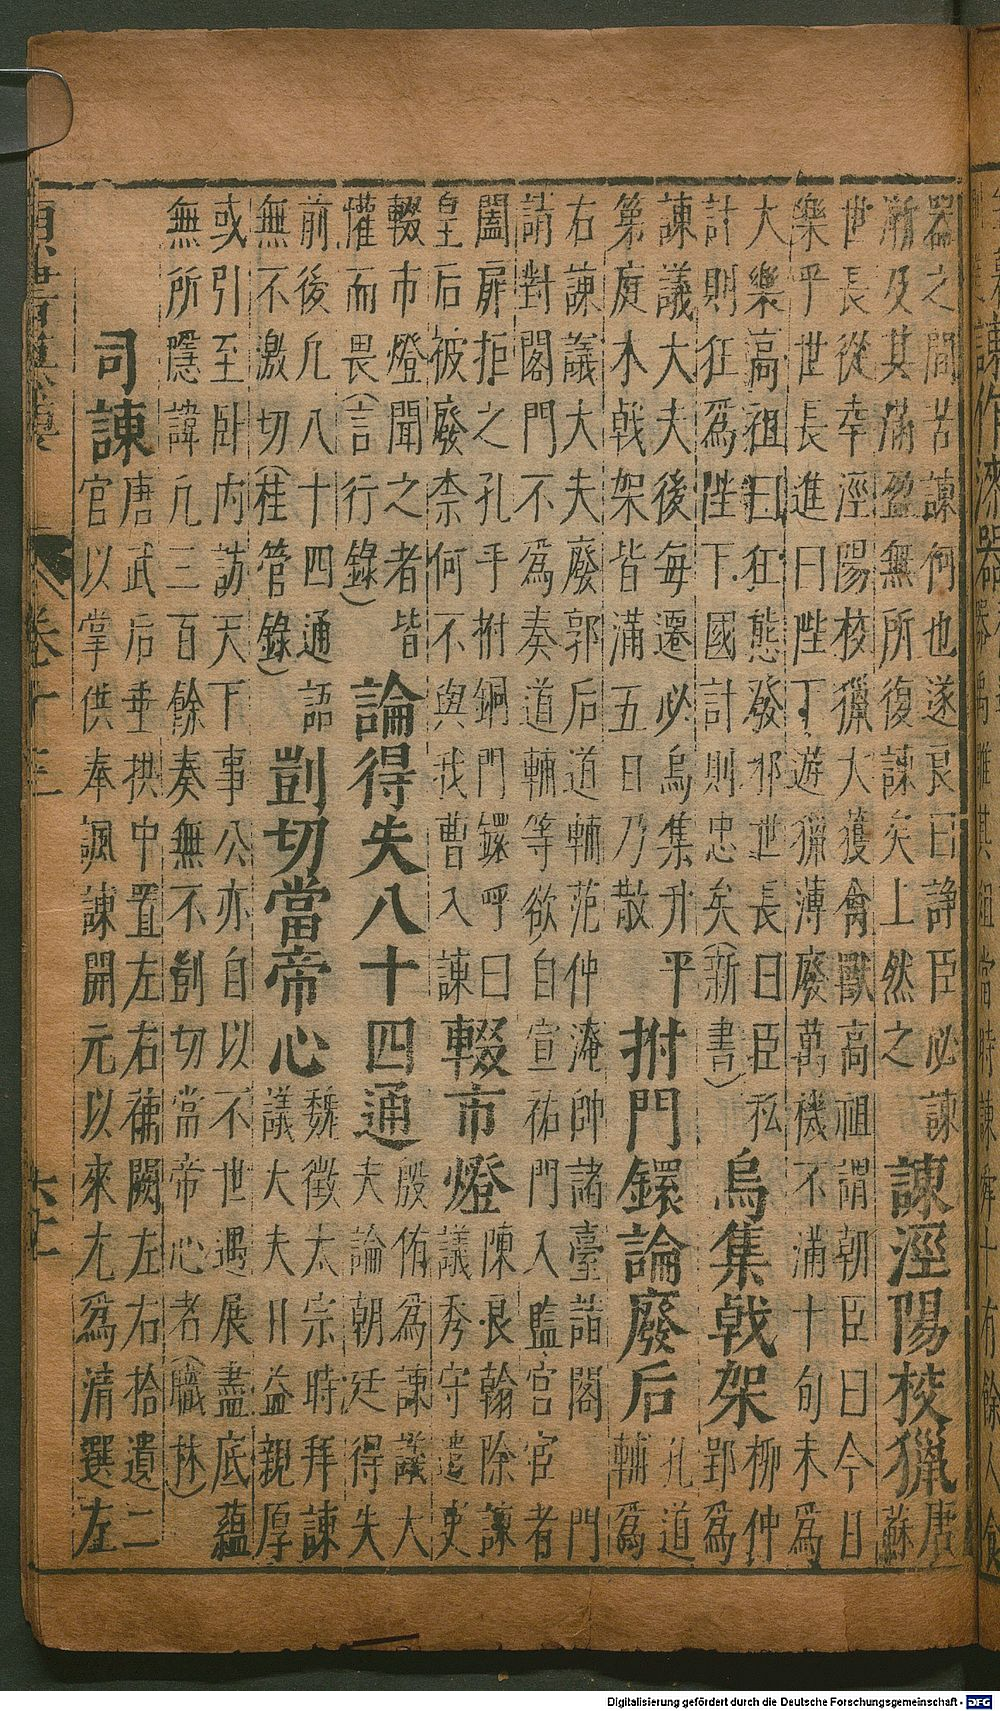 器之間苦諫何也遂良曰諍臣必諫
漸及其滿盈無所復諫矣上然之
諫涇陽校獵
唐
蘇
世長從幸涇陽校獵大獲禽獸高祖謂朝臣曰今日
樂乎世長進曰陛下遊獵薄廢萬機不滿十旬未為
大樂高祖曰狂態發邪世長曰臣私
計則狂為陛下國計則忠矣(新書)
烏集戟架
柳仲
郢為
諫議大夫後每遷必烏集升平
第庭木戟架皆滿五日乃散
拊門鐶論廢后
孔道
輔為
右諫議大夫廢郭后道輔范仲淹帥諸臺詣閣門
請對閣門不為奏道輔等欲自宣祐門入監宦官者
闔扉拒之孔手拊銅門鐶呼曰
皇后被廢柰何不與我曹入諫
輟市燈
陳良翰除諫
議秀守遣吏
輟市燈聞之者皆
懼而畏(言行錄)
論得失八十四通
殷侑為諫議大
夫論朝廷得失
前後凡八十四通語
無不激切(桂管錄)
剴切當帝心
魏徵太宗時拜諫
議大夫日益親厚
或引至臥內訪天下事公亦自以不世遇展盡底蘊
無所隱諱凡三百餘奏無不剴切當帝心者(職林)
司諫
唐武后垂拱中置左右補闕左右拾遺二
官以掌供奉諷諫開元以來尤為清選左
卷十三
Digitalisierung gefördert durch die Deutsche Forschungsgemeinschaft - DFG